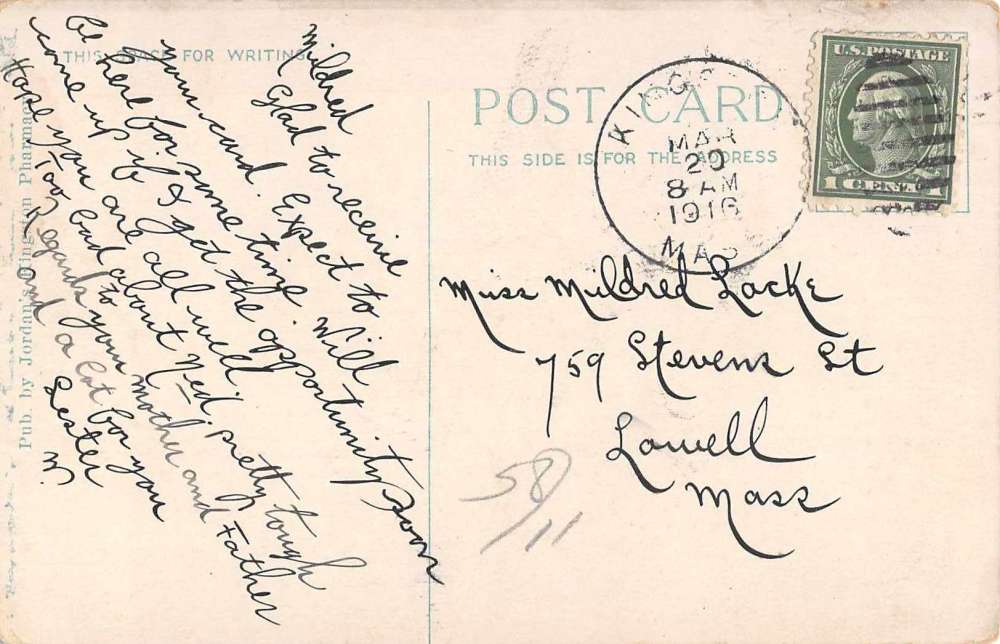 THIS SPACE FOR WRITING
Mildred
Glad to receive
your card. Expect to
be here for some time. Will
come up if I get the opportunity soon
Hope you are all well
Too bad about Ned, pretty tough
Regards to your mother and Father
and a lot for you
Lester
W.
Pub. by Jordan's Kingston Pharmacy
POST CARD
THIS SIDE IS FOR THE ADDRESS
MAR
20
8 AM
1916
MAS
U.S. POSTAGE
1 CENT
Miss Mildred Locke
759 Stevens St
Lowell
Mass
58/11